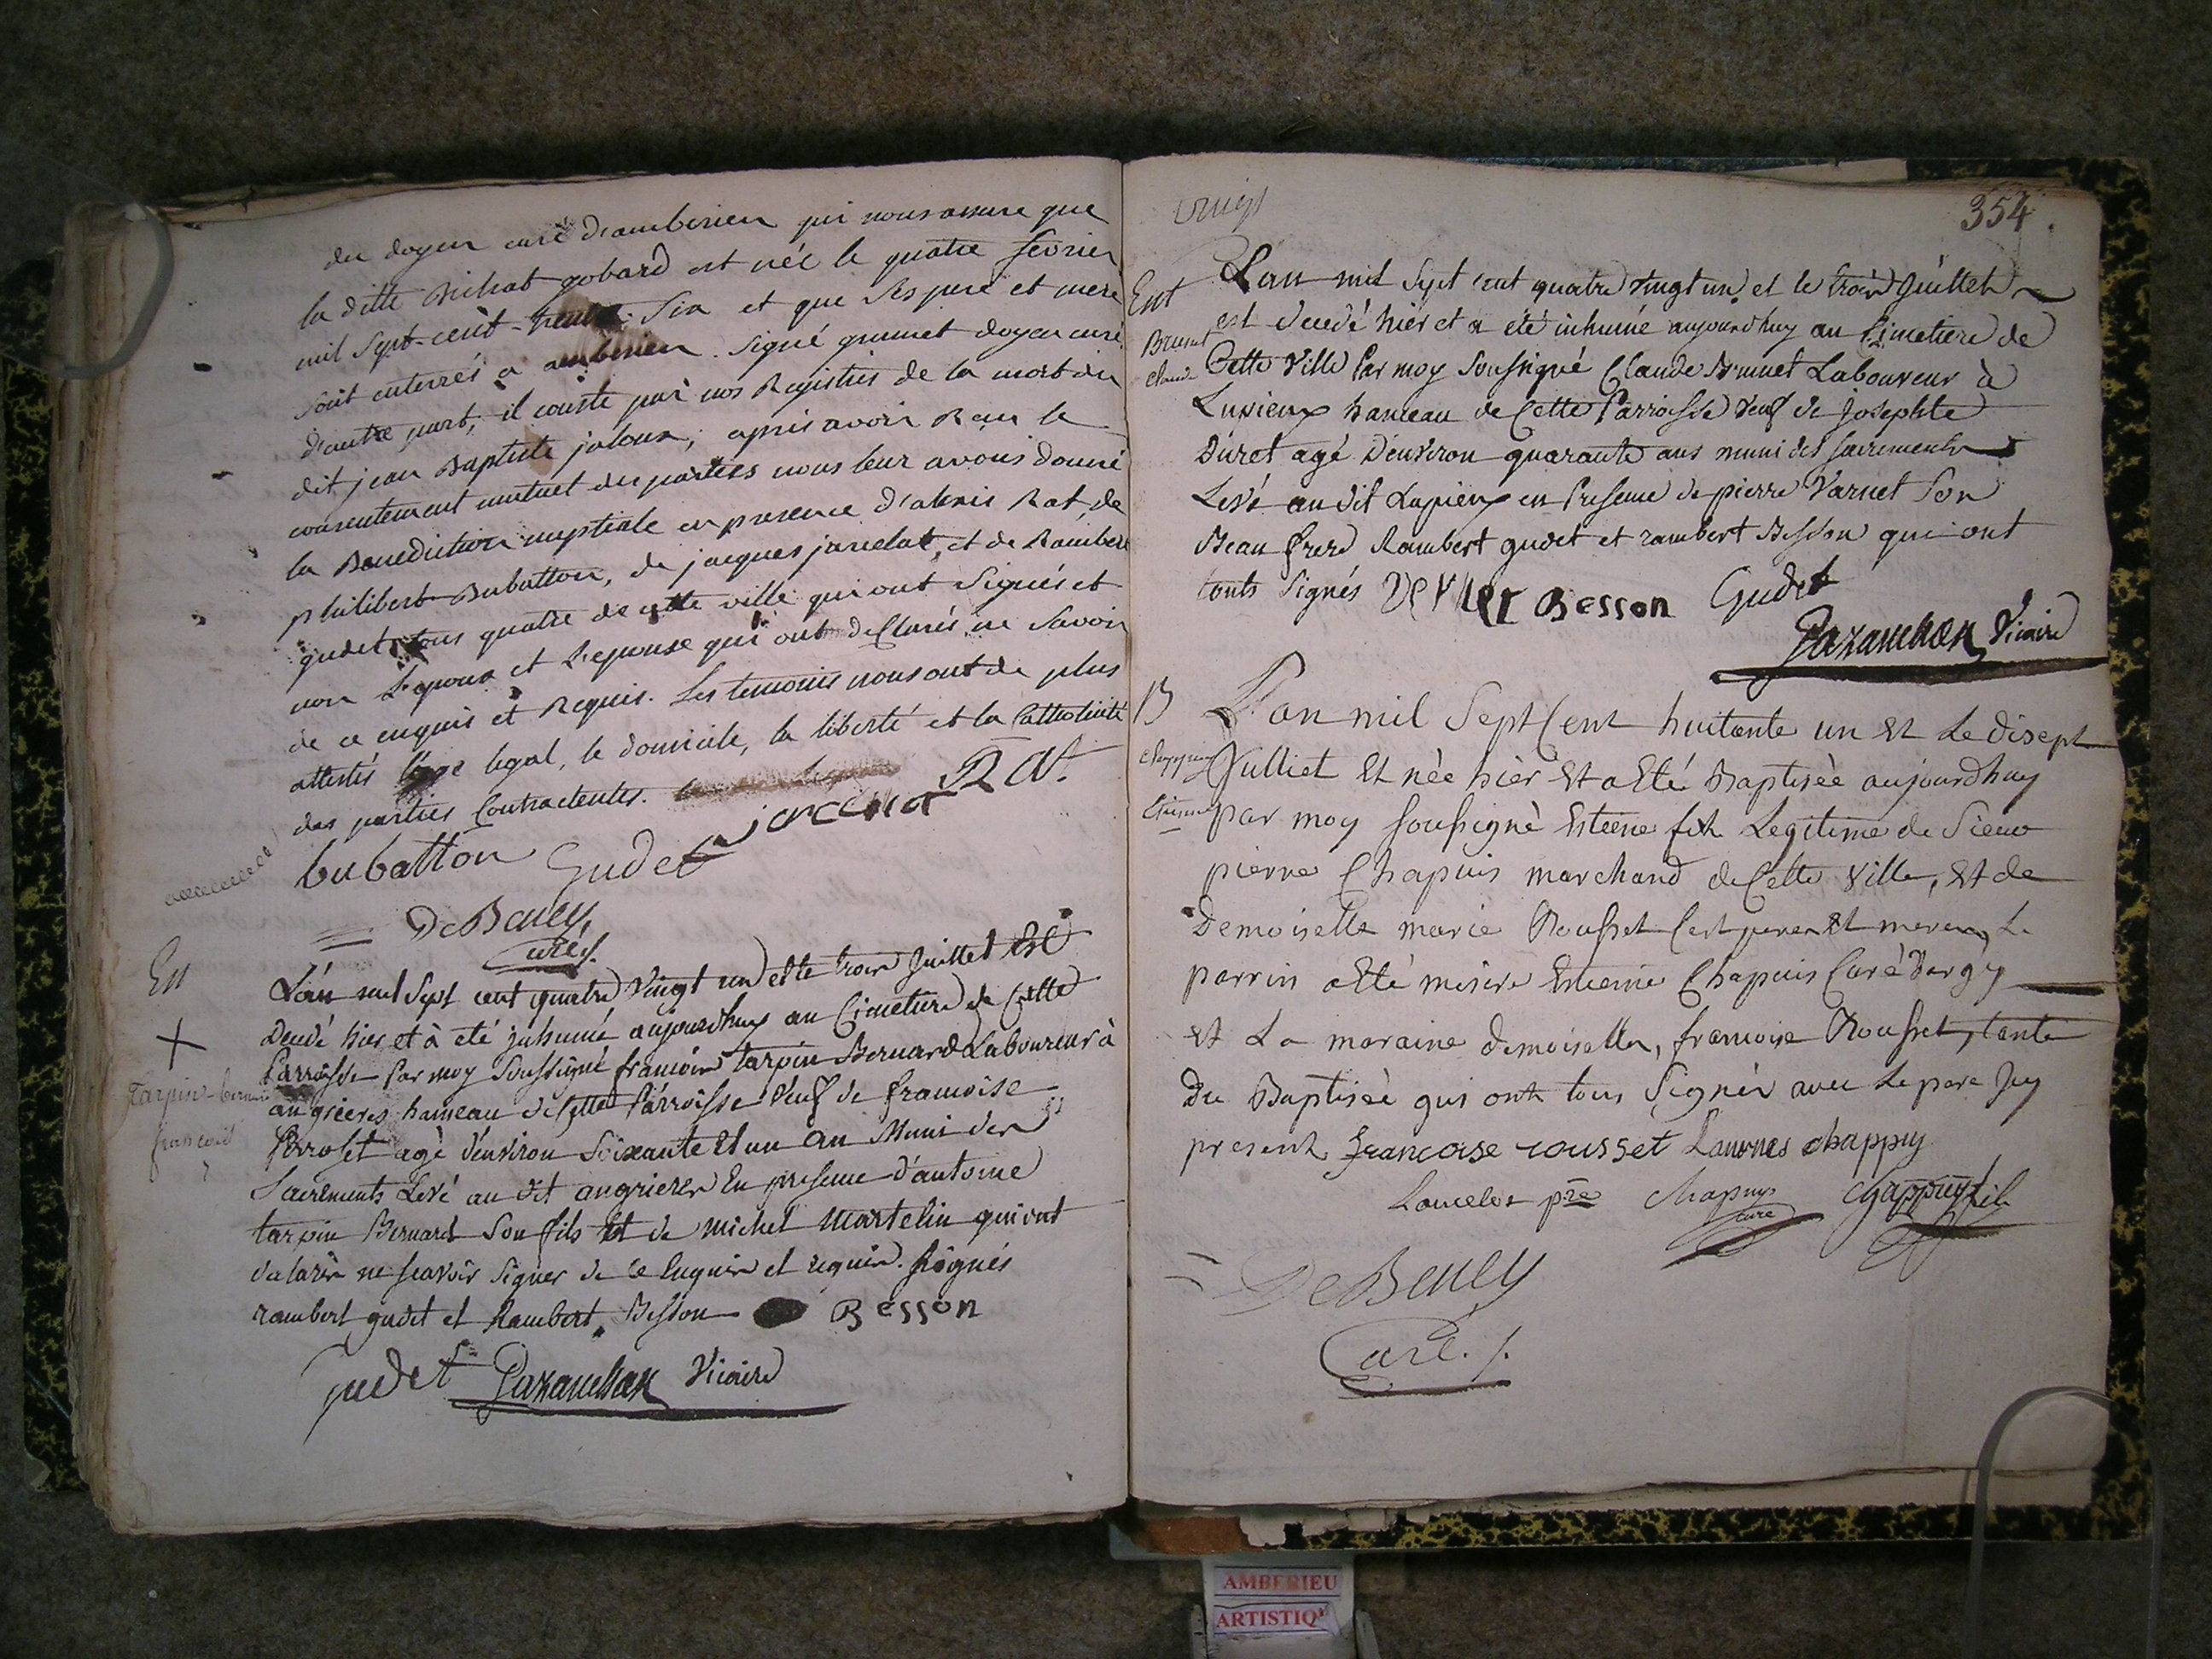 du doyen curé d'amberieu qui nous assure que
la ditte Michat gobard est née le quatre fevrier
mil sept-cent-trente-six et que ses pere et mere
sont enterrés a amberieu. signé grumet doyen curé
d'autre part, il conste par nos Registres de la mort du
dit jean Baptiste joloux, apres avoir Reçu le
consentement mutuel des parties nous leur avons donné
la Benediction nuptiale en presence d'alexis Rat, de
philibert Bubatton, de jacques jancelat, et de Rambert
gudet tous quatre de cette ville qui ont signés et
non L'epoux et L'epouse qui ont declarés ne savoir
de ce enquis et Requis. Les temoins nous ont de plus
attestés l'age legal, le domicile, la liberté et la Catholicité
des parties Contractentes.
bubatton Gudet RAt
DeBeuly,
Curé
En
L'an mil sept cent quatre vingt un et le trois Juillet Est
Decedé hier et à été inhumé aujourdhuy au Cimetiere de Cette
Parroisse Par moy Soussigné francois tarpin Bernard Laboureur à
angrieres hameau de Cette Parroisse Veuf de francoise
Perroset agé d'environ Soixante Et un an Muni des
Sacrements Levé au dit angrieres En presence d'antoine
tarpin Bernard Son fils Et de michel Martelin qui ont
declarés ne scavoir signer de ce Enquis et requis. signés
rambert gudet et Rambert Besson Besson
gudet Vicaire
Tarpin-bernard
francois
354
Ent
Brunet
claude
L'an mil sept cent quatre vingt un et le trois Juillet
est decedé hier et a été inhumé aujourdhuy au Cimetiere de
Cette Ville Par moy Soussigné Claude Brunet Laboureur à
Luysieux hameau de Cette Parroisse Veuf de Josephte
Duret agé D'environ quarante ans muni des sacrements
Levé au dit Luysieux en Presence de pierre Varnet Son
Beau frere Rambert gudet et rambert Besson qui ont
touts signés Besson Gudet
Vicaire
B
Chappuy
Etienne
L'an mil Sept Cent huitante un Et Le disept
Julliet Et née hier Et a Eté Baptisèe aujourdhuy
par moy soussignè Esteine fils Legitime de Sieur
pierre Chapuis marchand de Cette Ville, Et de
Demoiselle marie Rousset Cest pere Et mere, Le
parrin a Eté mesire Esteine Chapuis Curé Dargis
Et La maraine demoiselle, francoise Rousset, tante
Du Baptisèe qui ont tous Signés avec Le pere Icy
present francoise rousset chappuy
Lancelot pre Chapuys curé chappuys fils
DeBeuly
Curé.
AMBERIEU
ARTISTIQ